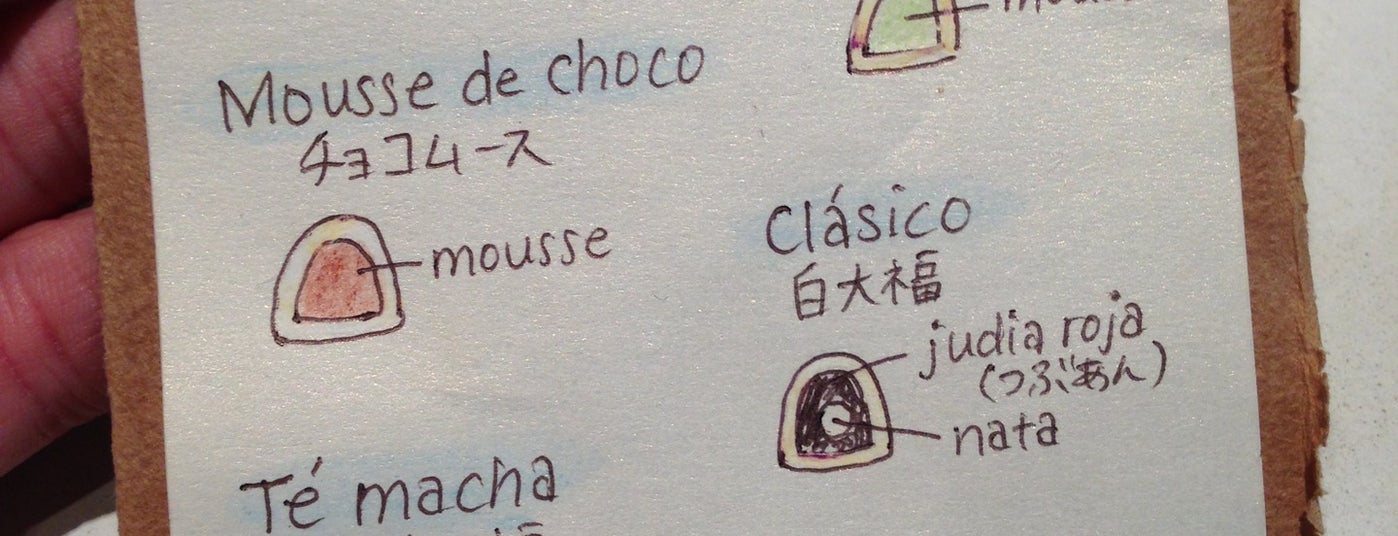 Mousse de choco
チョコムース
mousse
Clásico
白大福
judia roja
(つぶあん)
nata
Té macha